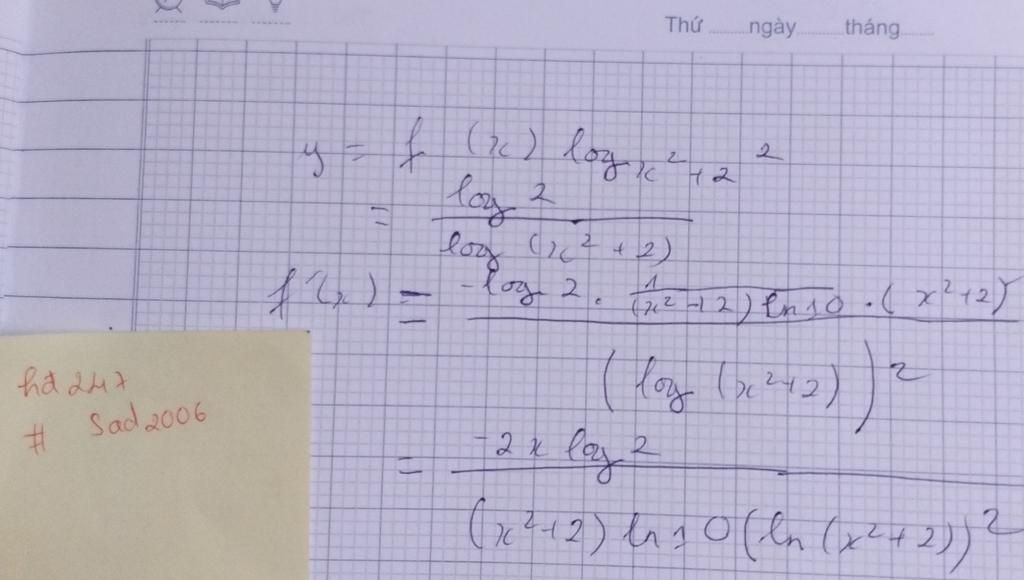 Thứ ........ ngày ........ tháng ........
y = f (x) log_{x²+2} 2
= log 2 / log (x² + 2)
f'(x) = -log 2 . 1/((x²+2) ln10) . (x²+2)' / (log (x²+2))²
= -2x log 2 / (x²+2) ln10 (ln (x²+2))²
hd 247
# Sad2006